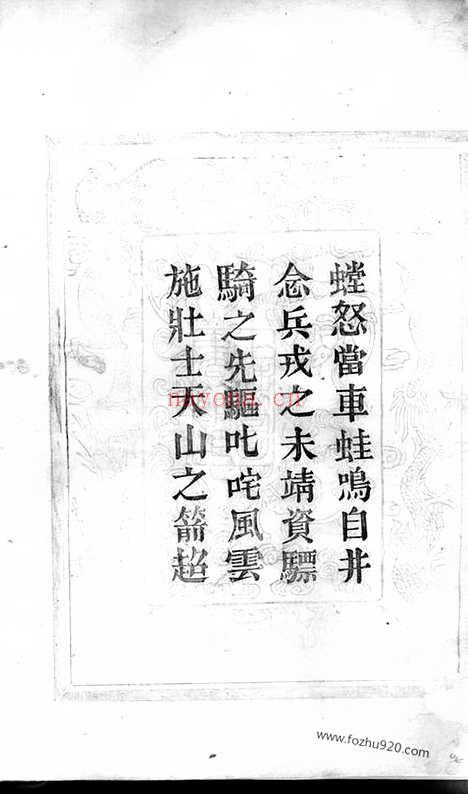 螳怒當車蛙鳴自井
念兵戎之未靖資驃
騎之先驅叱咤風雲
施壯士天山之箭趨
nayona.cn
www.fozhu920.com